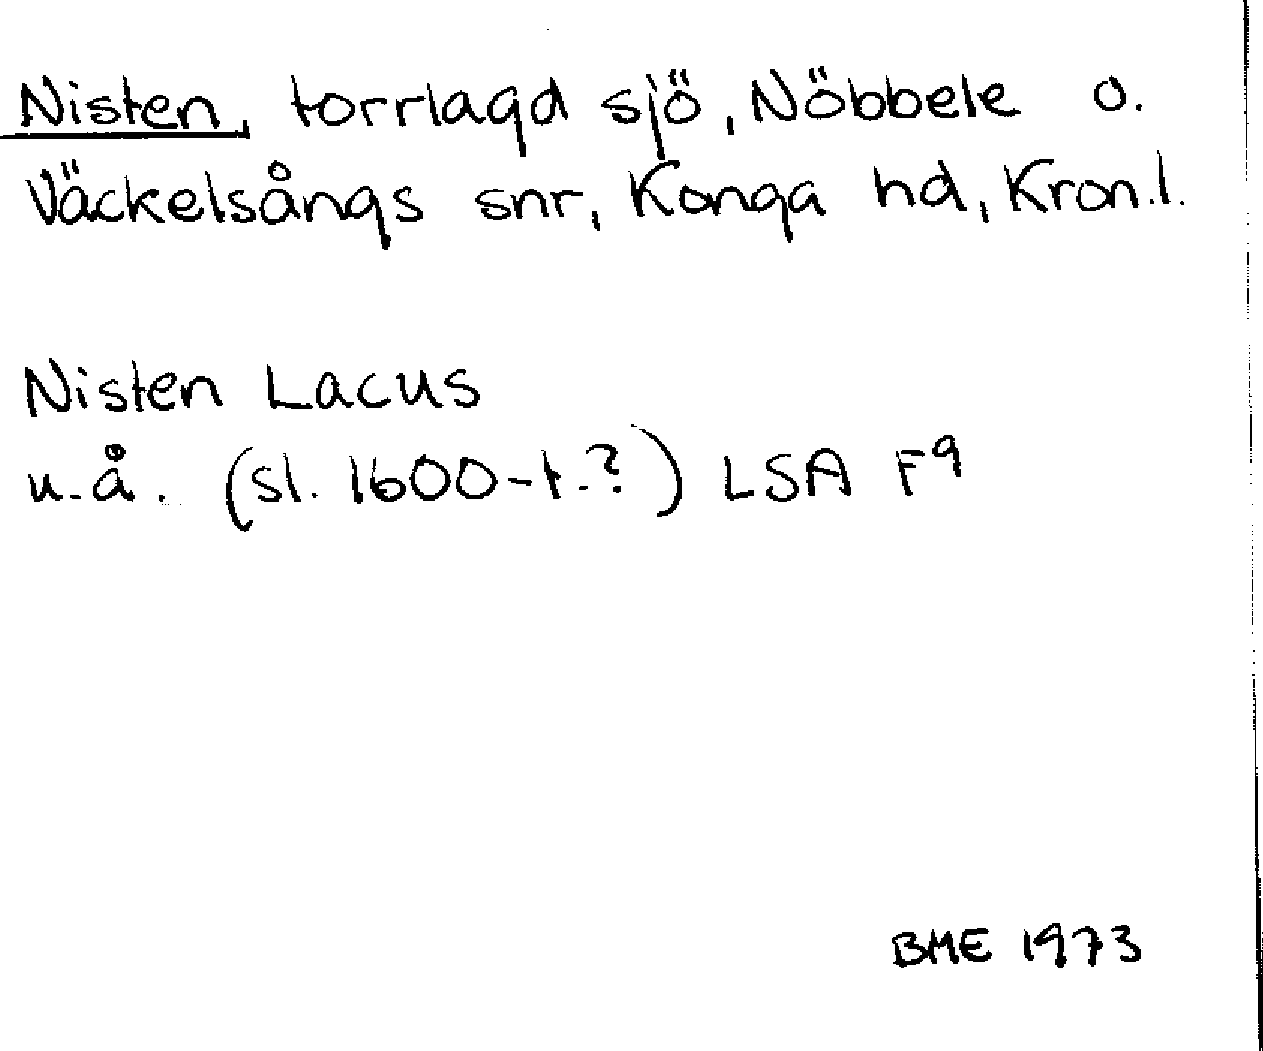 Nisten, torrlagd sjö, Nöbbele o.
Väckelsångs snr, Konga hd, Kron.l.
Nisten Lacus
u.å. (sl. 1600-t.?) LSA F9
BME 1973